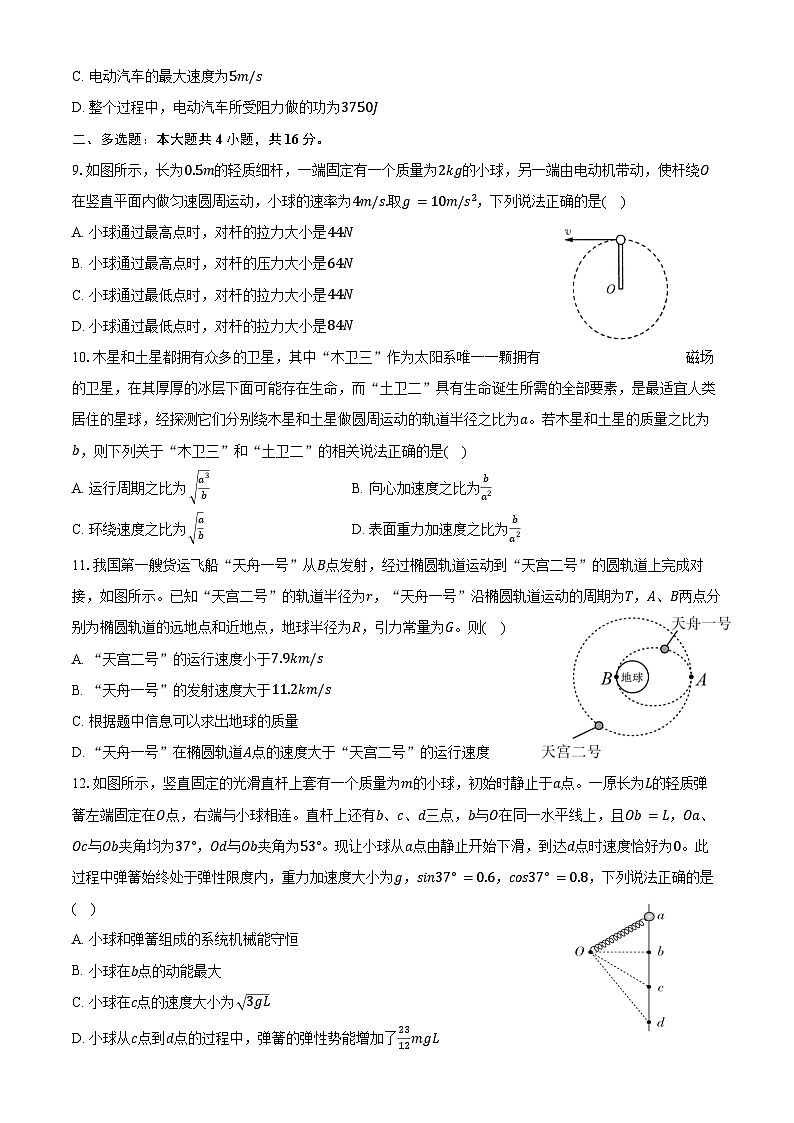 C. 电动汽车的最大速度为5m/s
D. 整个过程中，电动汽车所受阻力做的功为3750J
二、多选题：本大题共 4 小题，共 16 分。
9. 如图所示，长为0.5m的轻质细杆，一端固定有一个质量为2kg的小球，另一端由电动机带动，使杆绕O
在竖直平面内做匀速圆周运动，小球的速率为4m/s.取g = 10m/s²，下列说法正确的是( )
A. 小球通过最高点时，对杆的拉力大小是44N
B. 小球通过最高点时，对杆的压力大小是64N
C. 小球通过最低点时，对杆的拉力大小是44N
D. 小球通过最低点时，对杆的拉力大小是84N
v
O
10. 木星和土星都拥有众多的卫星，其中“木卫三”作为太阳系唯一一颗拥有 磁场
的卫星，在其厚厚的冰层下面可能存在生命，而“土卫二”具有生命诞生所需的全部要素，是最适宜人类
居住的星球，经探测它们分别绕木星和土星做圆周运动的轨道半径之比为a。若木星和土星的质量之比为
b，则下列关于“木卫三”和“土卫二”的相关说法正确的是( )
A. 运行周期之比为 √(a³/b) B. 向心加速度之比为 b/a²
C. 环绕速度之比为 √(a/b) D. 表面重力加速度之比为 b/a²
11. 我国第一艘货运飞船“天舟一号”从B点发射，经过椭圆轨道运动到“天宫二号”的圆轨道上完成对
接，如图所示。已知“天宫二号”的轨道半径为r，“天舟一号”沿椭圆轨道运动的周期为T，A、B两点分
别为椭圆轨道的远地点和近地点，地球半径为R，引力常量为G。则( )
A. “天宫二号”的运行速度小于7.9km/s
B. “天舟一号”的发射速度大于11.2km/s
C. 根据题中信息可以求出地球的质量
D. “天舟一号”在椭圆轨道A点的速度大于“天宫二号”的运行速度
天舟一号
B 地球 A
天宫二号
12. 如图所示，竖直固定的光滑直杆上套有一个质量为m的小球，初始时静止于a点。一原长为L的轻质弹
簧左端固定在O点，右端与小球相连。直杆上还有b、c、d三点，b与O在同一水平线上，且Ob = L，Oa、
Oc与Ob夹角均为37°，Od与Ob夹角为53°。现让小球从a点由静止开始下滑，到达d点时速度恰好为0。此
过程中弹簧始终处于弹性限度内，重力加速度大小为g，sin37° = 0.6，cos37° = 0.8，下列说法正确的是
( )
A. 小球和弹簧组成的系统机械能守恒
B. 小球在b点的动能最大
C. 小球在c点的速度大小为 √(3gL)
D. 小球从c点到d点的过程中，弹簧的弹性势能增加了23/12 mgL
a
O b
c
d